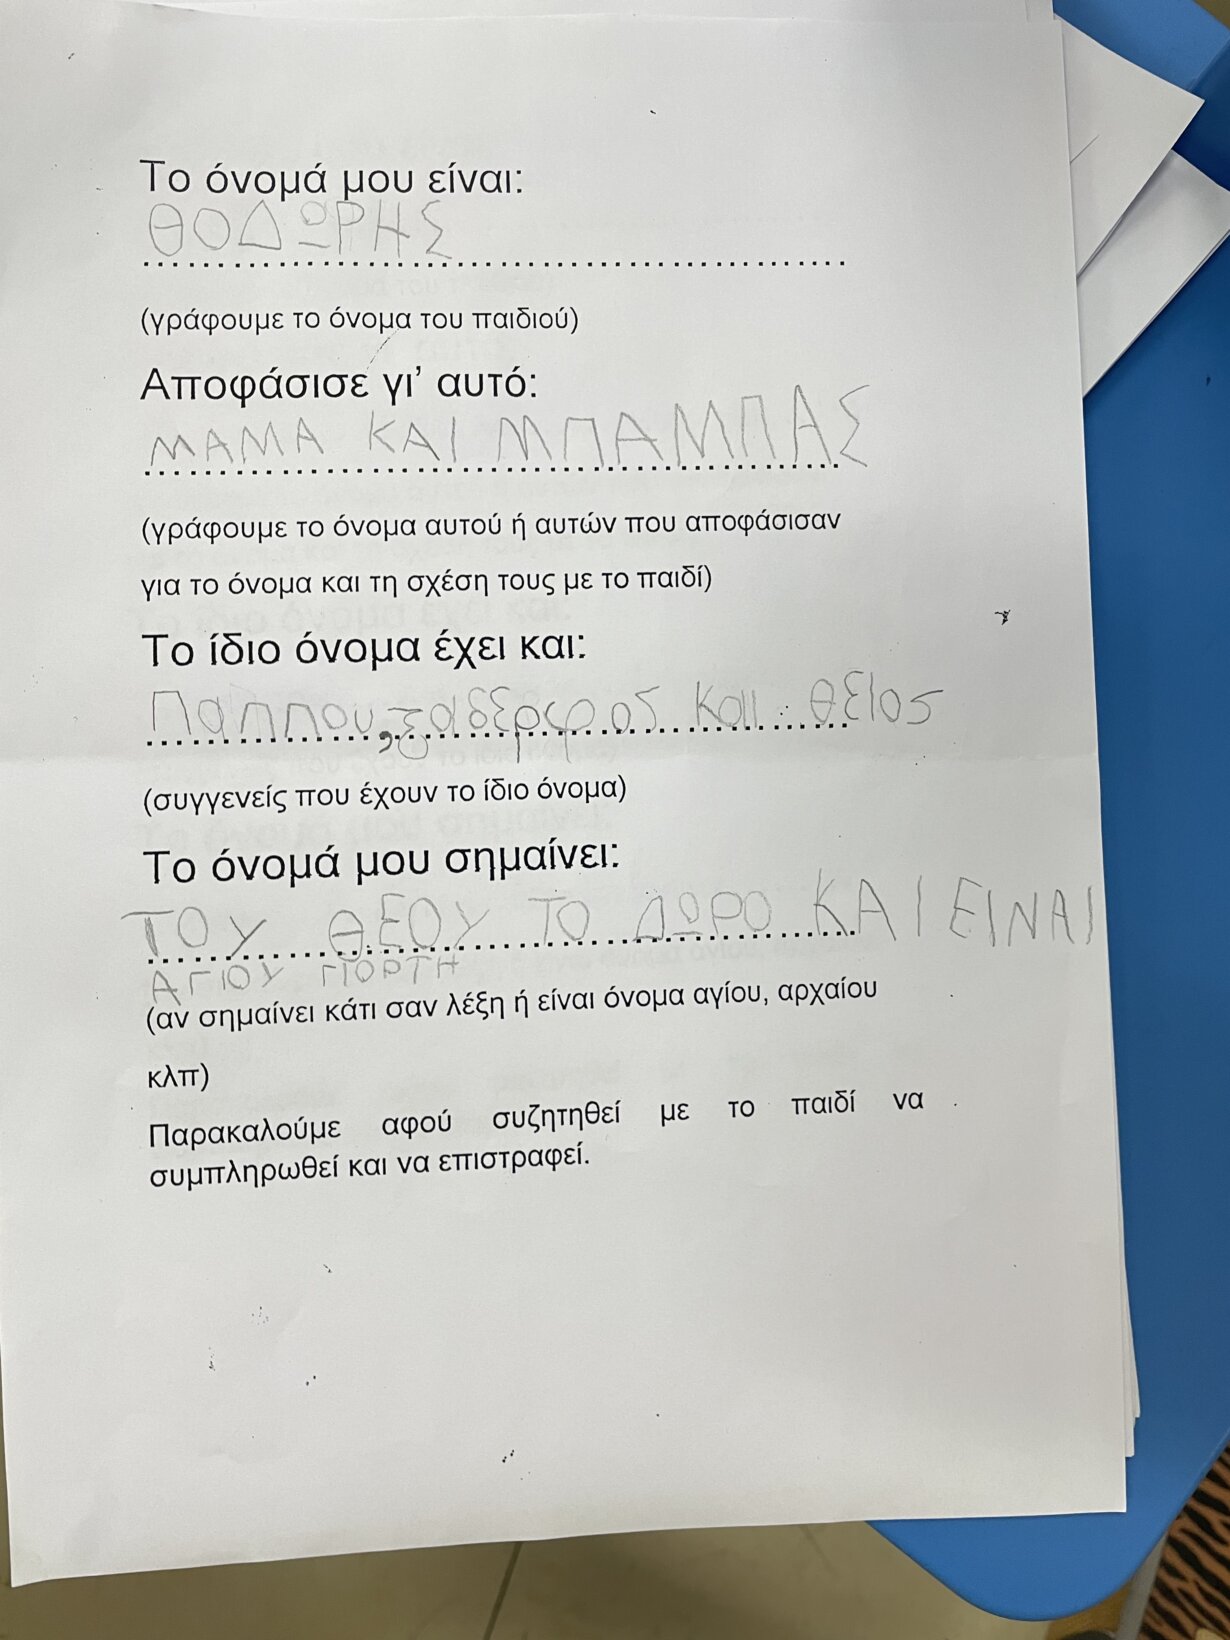 Το όνομά μου είναι:
ΘΟΔΩΡΗΣ
(γράφουμε το όνομα του παιδιού)
Αποφάσισε γι' αυτό:
ΜΑΜΑ ΚΑΙ ΜΠΑΜΠΑΣ
(γράφουμε το όνομα αυτού ή αυτών που αποφάσισαν
για το όνομα και τη σχέση τους με το παιδί)
Το ίδιο όνομα έχει και:
Παππου, ξαδερφος και θειος
(συγγενείς που έχουν το ίδιο όνομα)
Το όνομά μου σημαίνει:
ΤΟΥ ΘΕΟΥ ΤΟ ΔΩΡΟ ΚΑΙ ΕΙΝΑΙ
ΑΓΙΟΥ ΓΙΟΡΤΗ
(αν σημαίνει κάτι σαν λέξη ή είναι όνομα αγίου, αρχαίου
κλπ)
Παρακαλούμε αφού συζητηθεί με το παιδί να
συμπληρωθεί και να επιστραφεί.